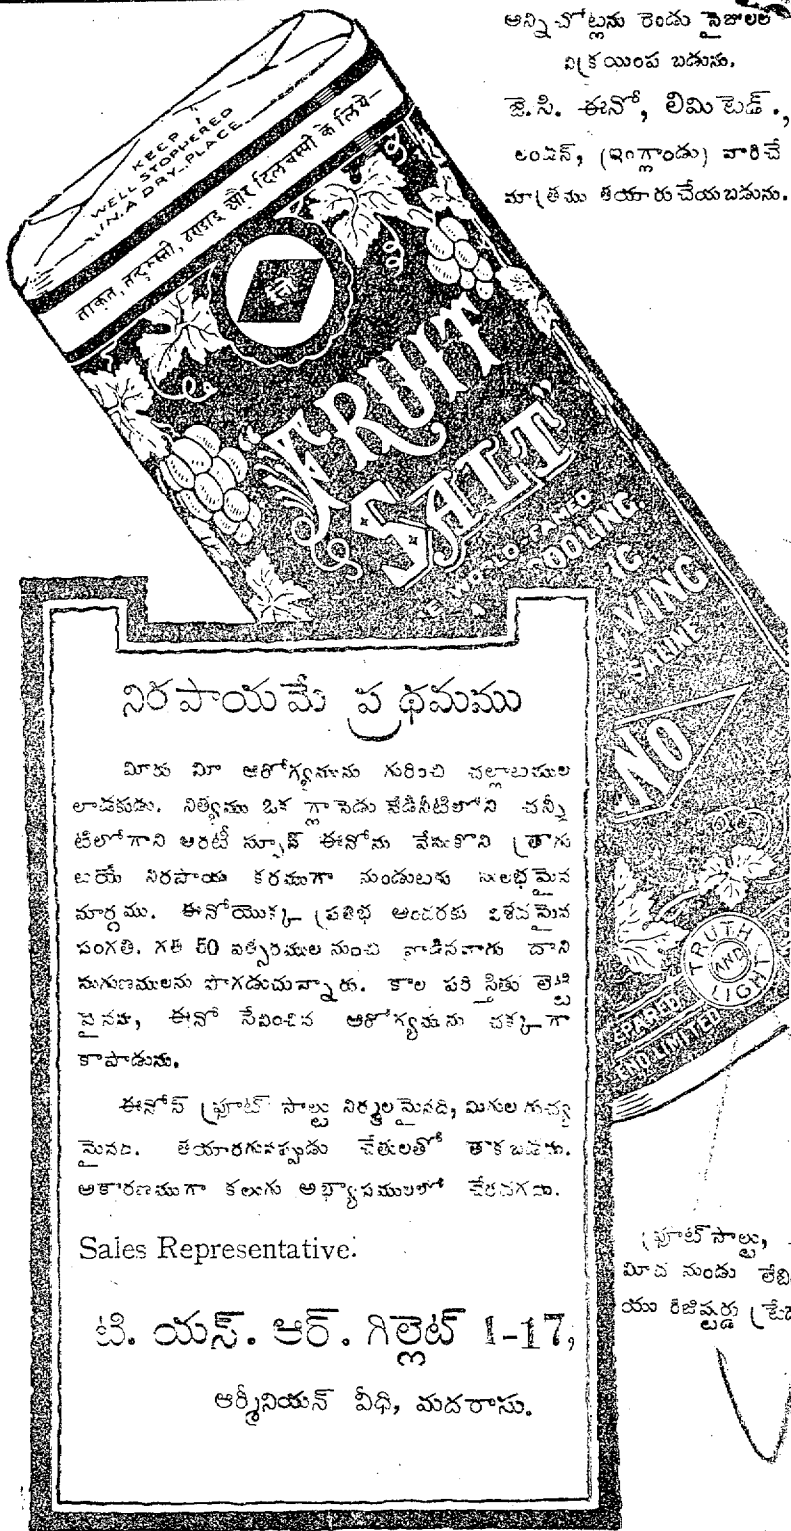 అన్ని చోట్లను రెండు సైజులల
విక్రయింప బడును.
జె.సి. ఈనో, లిమిటెడ్.,
లండన్, (ఇంగ్లాండు) వారిచే
మాత్రము తయారుచేయబడును.
KEEP
WELL STOPPERED
IN A DRY PLACE
ताकत, तन्दुरुस्ती, ठण्डाई और दिलचस्पी के लिये
ईनो
"FRUIT
SALT"
WORLD-FAMED
COOLING,
VING
SALINE
NO
TRUTH
AND
LIGHT
PARED
END LIMITED
నిరపాయమే ప్రథమము
మీకు మీ ఆరోగ్యమును గురించి చల్లాటముల
లాడకుడు. నిత్యము ఒక గ్లాసెడు వేడినీటిలోని చన్నీ
టిలోగాని ఆరటీ స్పూన్ ఈనోను వేసుకొని త్రాగు
టయే నిరపాయ కరముగా నుండుటకు సులభమైన
మార్గము. ఈనోయొక్క ప్రతిభ అందరకు విశేషమైన
సంగతి. గత 50 వత్సరముల నుంచి వాడినవారు దాని
సుగుణములను పొగడుచున్నారు. కాల పరి స్థితు లెట్టి
వైనను, ఈనో సేవించిన ఆరోగ్యమును చక్కగా
కాపాడును.
ఈనోస్ ఫ్రూట్ సాల్టు నిర్మలమైనది, మిగుల గుహ్య
మైనది. తయారగునప్పుడు చేతులతో తాకబడదు.
అకారణముగా కలుగు అభ్యాసములలో చేరినగదు.
Sales Representative.
టి. యస్. ఆర్. గిల్లెట్ 1-17,
ఆర్మీనియన్ వీధి, మదరాసు.
ఫ్రూట్ సాల్టు,
మీద నుండు లేబి
యు రిజిష్టర్డు ట్రేడ